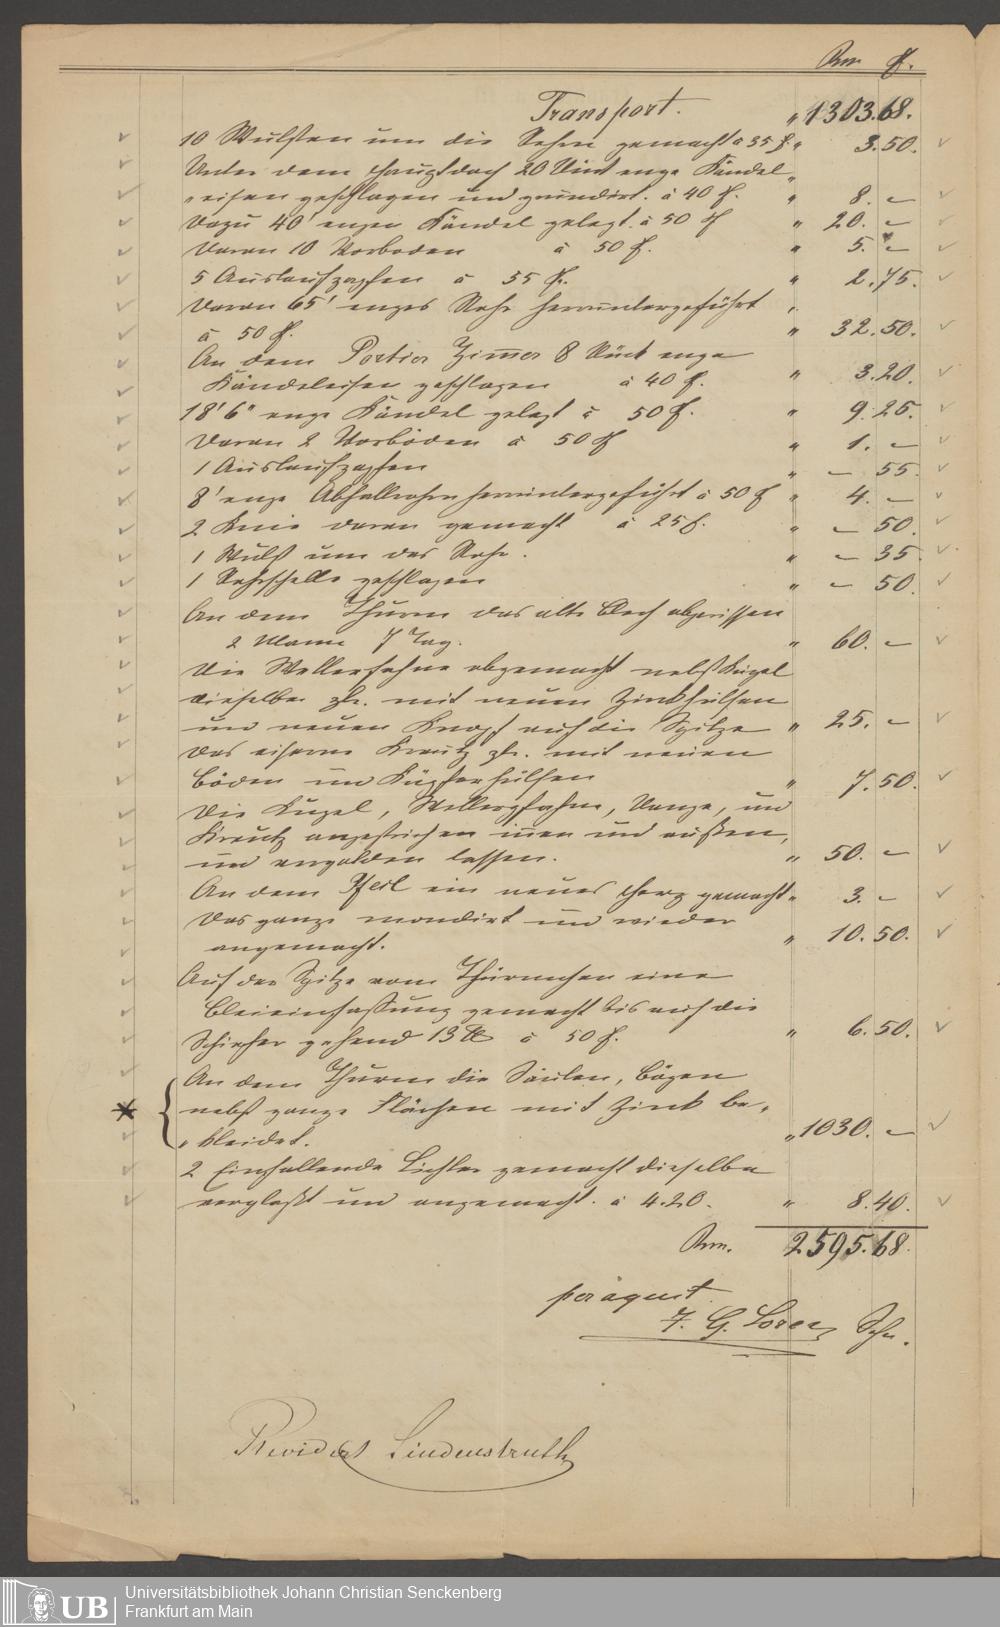 Rm ₰.
Transport. " 1303.68.
10 Wulsten um die Rohre gemacht à 35 ₰ " 3.50.
Unter dem Hauptdach 20 Stück enge Kändel
" eisen geschlagen und grundirt. à 40 ₰. " 8. –
Dazu 40' engen Kändel gelegt. à 50 ₰ " 20. –
Daran 10 Vorboden à 50 ₰. " 5. –
5 Auslaufzapfen à 55 ₰. " 2.75.
Daran 65' enges Rohr herruntergeführt "
à 50 ₰. " 32.50.
An dem Portier Zimmer 8 Stück enge
Kändeleisen geschlagen à 40 ₰. " 3.20.
18' 6" enge Kändel gelegt à 50 ₰. " 9.25.
Daran 2 Vorböden à 50 ₰ " 1. –
1 Auslaufzapfen " – 55.
8' enge Abfallrohre herruntergeführt à 50 ₰ " 4. –
2 Knie daran gemacht à 25 ₰. " – 50.
1 Wulst um das Rohr. " – 35.
1 Rohrschelle geschlagen " – 50.
An dem Thurm das alte Blech abgerissen
2 Mann 7 Tag. " 60. –
Die Wetterfahne abgemacht nebst Kugel
dieselbe mit neuen Zinkhülsen
und neuen Knopf auf die Spitze " 25. –
Das eiserne Kreutz mit neuen
Böden und Kupferhülsen " 7.50.
Die Kugel, Wetterfahne, Stange, und
Kreutz angestrichen innen und außen,
und vergolden lassen. " 50. –
An dem Pfeil ein neues Herz gemacht " 3. –
Das ganze montirt und wieder
angemacht. " 10.50.
Auf der Spitze vom Thürmchen eine
Bleieinfassung gemacht bis auf die
Schiefer gehend 13 ℔ à 50 ₰. " 6.50.
An dem Thurm die Säulen, Bögen
nebst ganze Flächen mit Zink be-
" kleidet. " 1030. –
2 Einfallende Lichter gemacht dieselbe
verglast und angemacht. à 4.20. " 8.40.
Rm. 2595.68.
per aquit
F. G. Lorey Sohn.
Revidirt Lindenstruth
UB Universitätsbibliothek Johann Christian Senckenberg
Frankfurt am Main